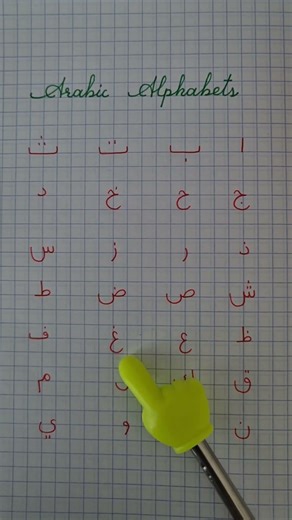 Arabic Alphabets
ا ب ت ث
ج ح خ د
ذ ر ز س
ش ص ض ط
ظ ع غ ف
ق م
ن و ي